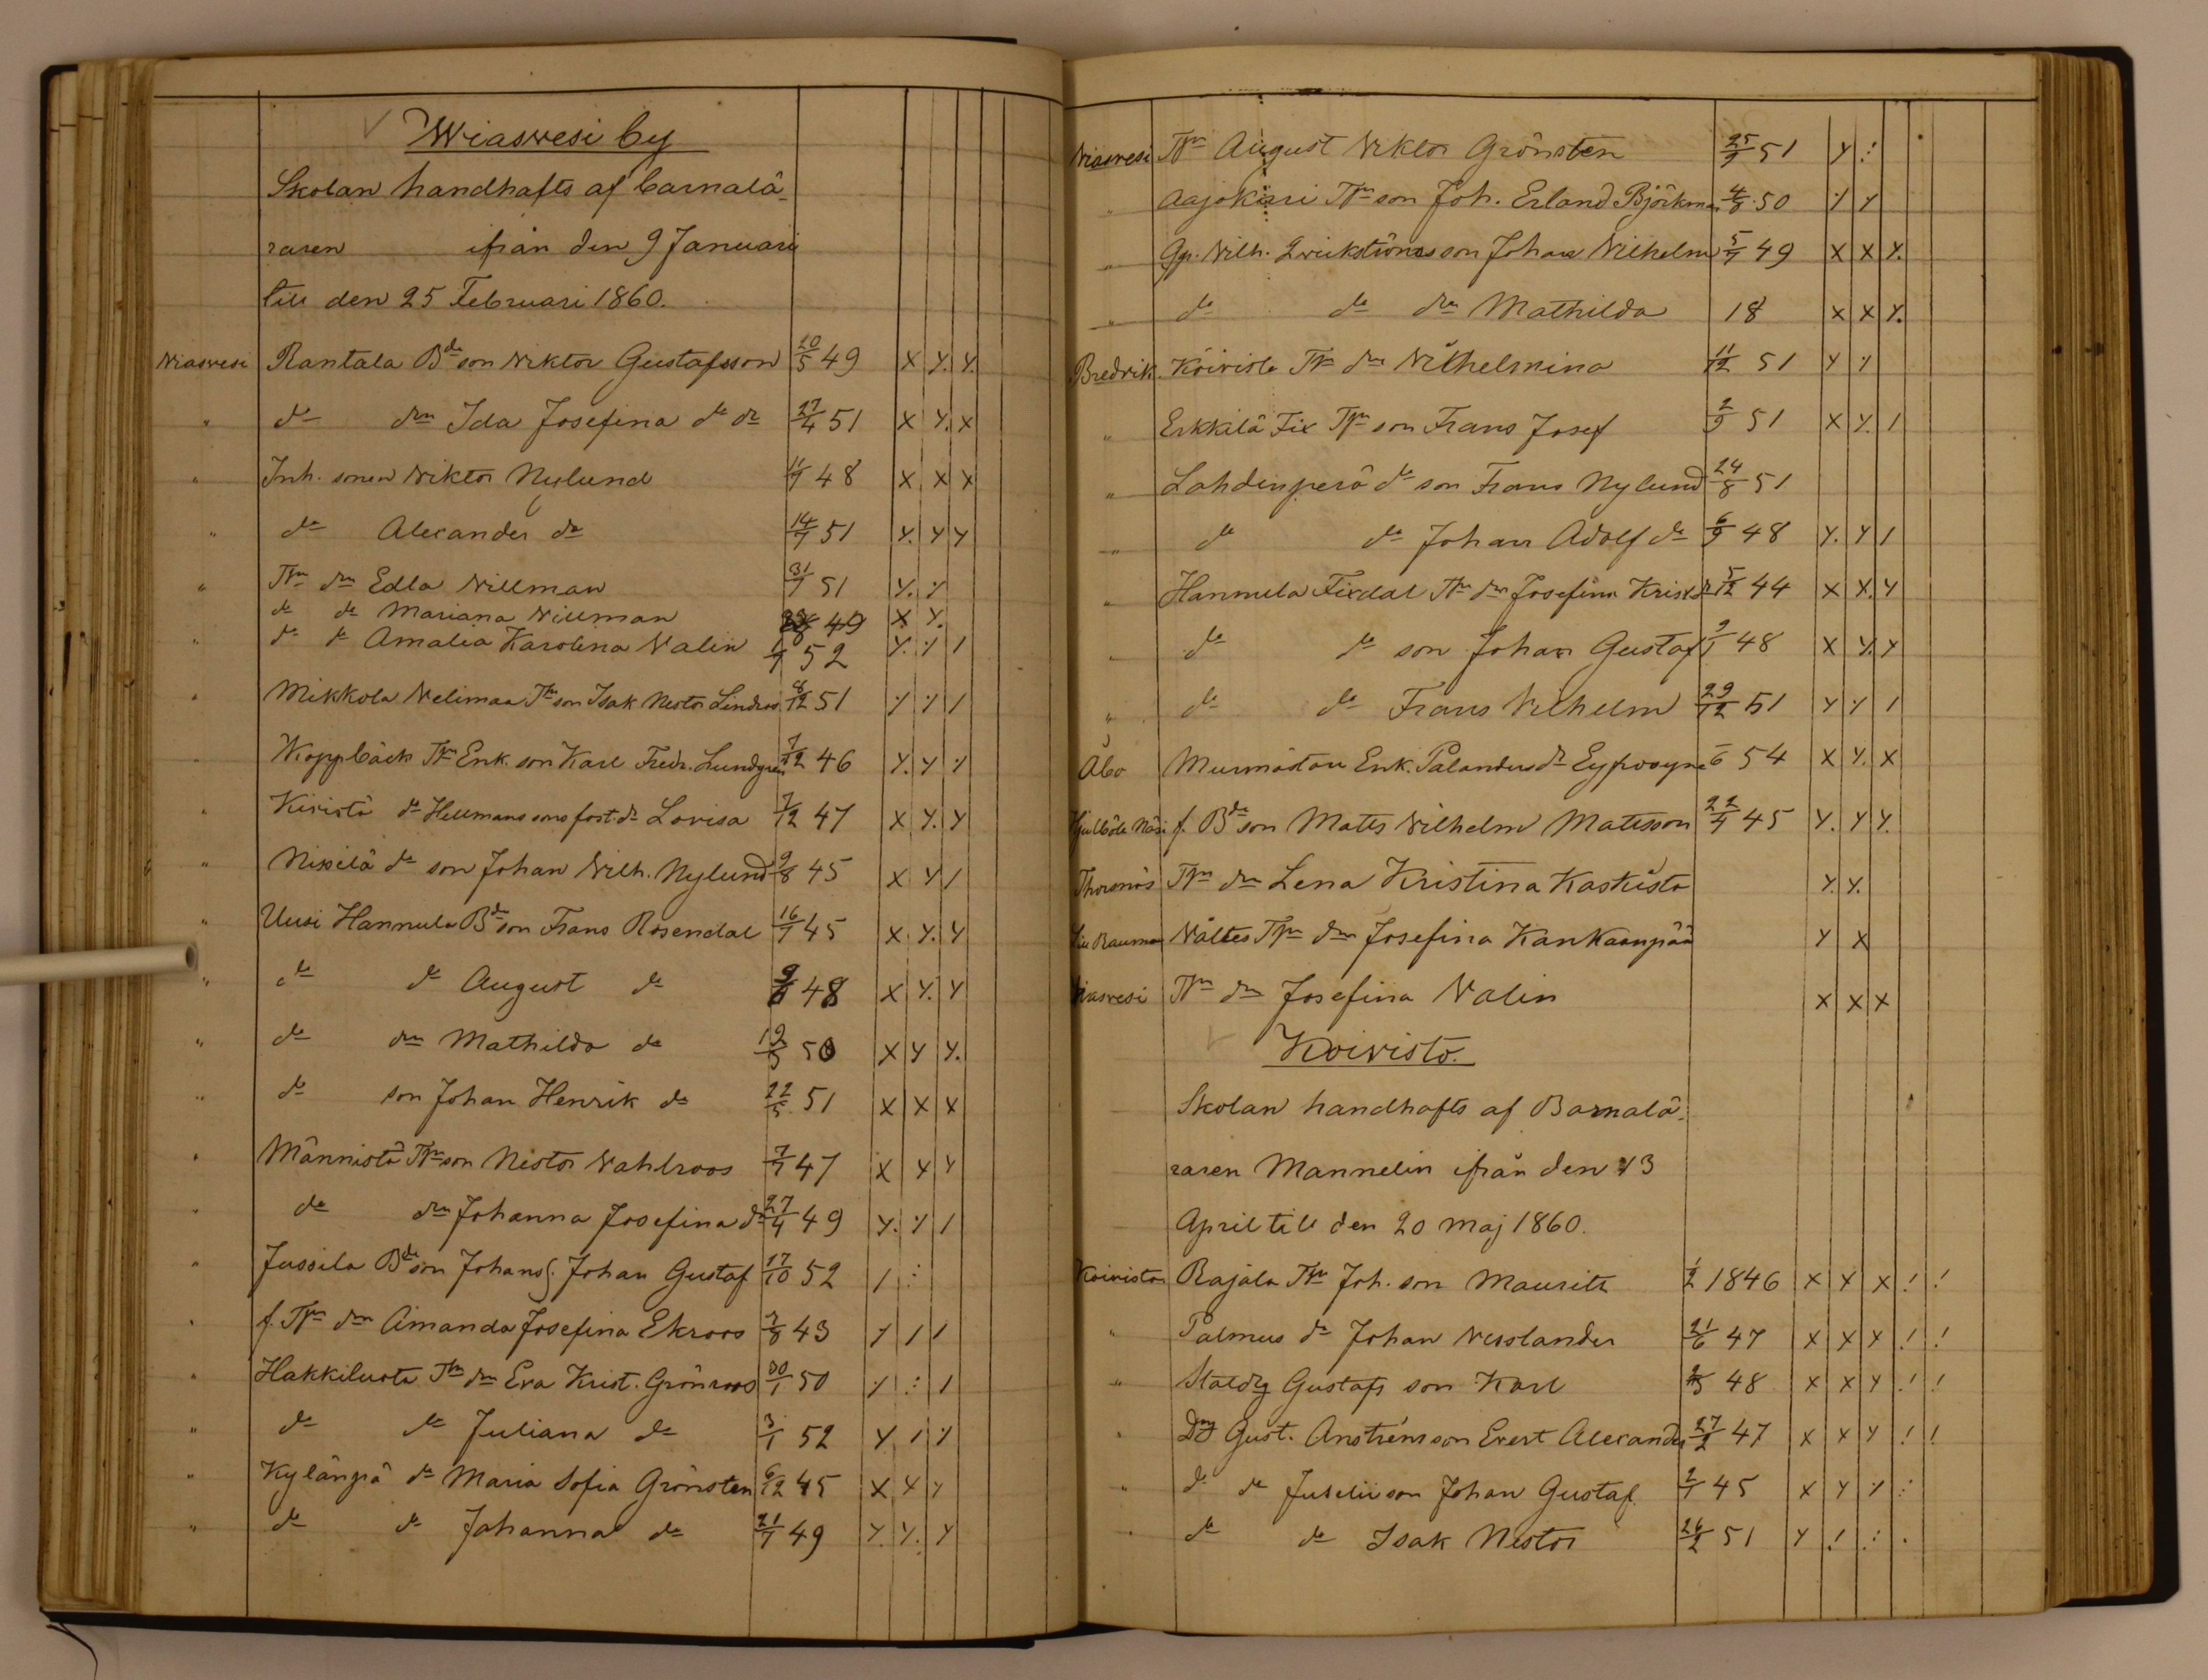 Wiasvesi by
Skolan handhafts af barnalä-
raren ifrån den 9 Januari
till den 25 Februari 1860.
Wiasvesi Rantala Bde son Wiktor Gustafsson 20/5 49 X Y. Y.
" do drn Ida Josefina do do 27/4 51 X Y. X
" Inh. sonen Wiktor Nylund 48 X X X
" do Alexander do 51 Y. Y Y
" Tpr drn Edla Willman 51 Y. ⁒
do do Mariana Willman 49 X Y.
" do do Amalia Karolina Valin 52 Y. ⁒ /
" Mikkola Welimaa Tpr son Isak Nestor Lindroos 8/12 51 ⁒ ⁒ /
" Koppbäck Tpr Enk. son Karl Fredr. Lundgren 7/12 46 Y. Y ⁒
" Kivistö do Hellmans sons fost. dr Lovisa 7/12 47 X Y. Y
" Nixilä do son Johan Wilh. Nylund 9/8 45 X Y /
" Uusi Hannula Bde son Frans Rosendal 45 X Y. Y
" do do August do 48 X Y. Y
" do drn Mathilda do 50 X Y Y.
" do son Johan Henrik do 22/5 51 X X X
" Männistö Tpr son Nestor Vahlroos 47 X Y Y
" do drn Johanna Josefina do 27/4 49 Y. ⁒ /
" Jussila Bde son Johans S. Johan Gustaf 17/10 52 / :
" f. Tpr drn Amanda Josefina Ekroos 43 ⁒ / /
" Hakkiluoto Tpr drn Eva Krist. Grönroos 30/1 50 ⁒ : /
" do do Juliana do 3/1 52 Y / ⁒
" Kylänpä do Maria Sofia Grönsten 6/12 45 X Y Y
" do do Johanna do 49 Y. Y. Y
Wiasvesi Tpr August Viktor Grönsten 51 Y :
" Aajokari Tpr son Joh. Erland Björkman 50 ⁒ Y
" Gp. Wilh. Qvickströms son Johan Wilhelm 49 X X Y.
" do do drn Mathilda 18 X X Y.
Bredvik Koivisto Tpr drn Wilhelmina 11/12 51 Y ⁒
" Erkkilä Fix Tpr son Frans Josef 2/9 51 X Y. /
" Lahdinperä do son Frans Nylund 24/8 51
" do do Johan Adolf do 6/9 48 Y. Y /
" Hannula Fixdal Tpr drn Josefina Krist. 5/12 44 X X. Y
" do do son Johan Gustaf 48 X Y. Y
" do do Frans Wilhelm 29/12 51 Y ⁒ /
Åbo Murmästare Enk. Palander dr 54 X Y. X
f. Bde son Matts Wilhelm Matsson 45 Y. Y Y.
Thorsnäs Tpr drn Lena Kristina Kaskisto Y. Y.
Rauma Tpr drn Josefina Kankaanpää Y X
Wiasvesi Tpr drn Josefina Valin X X X
Koivisto.
Skolan handhafts af Barnalä-
raren Mannelin ifrån den 13
April till den 20 maj 1860.
Koivisto Rajala Tpr Joh. son Mauritz 1/2 1846 X X X ! !
" Palmus do Johan Wesslander 21/6 47 X X Y ! !
" Staldrg Gustafs son Karl 48 X X Y ! !
" Drg Gust. Anströms son Evert Alexander 27/2 47 X X Y ! !
" do do Juselii son Johan Gustaf 45 X Y ⁒ :
" do do Isak Nestor 26/2 51 Y ! : .